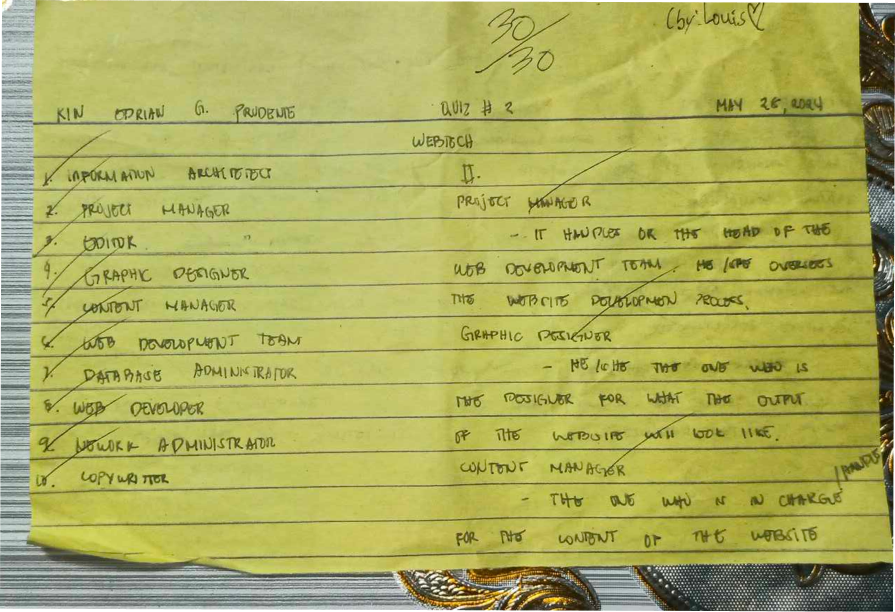 30/30
(by: Louis♡
KIN EDRIAN G. PRUDENTE QUIZ # 2 MAY 28, 2024
WEBTECH
1. INFORMATION ARCHITETECT
2. PROJECT MANAGER
3. EDITOR
4. GRAPHIC DESIGNER
5. CONTENT MANAGER
6. WEB DEVELOPMENT TEAM
7. DATABASE ADMINISTRATOR
8. WEB DEVELOPER
9. NEWORK ADMINISTRATOR
10. COPYWRITER
II.
PROJECT MANAGER
- IT HANDLES OR THE HEAD OF THE
WEB DEVELOPMENT TEAM. HE/SHE OVERSEES
THE WEBSITE DEVELOPMEN PROCESS.
GRAPHIC DESIGNER
- HE/SHE THE ONE WHO IS
THE DESIGNER FOR WHAT THE OUTPUT
OF THE WEBSITE WILL LOOK LIKE.
CONTENT MANAGER
- THE ONE WHO IS IN CHARGE /HANDLE
FOR THE CONTENT OF THE WEBSITE